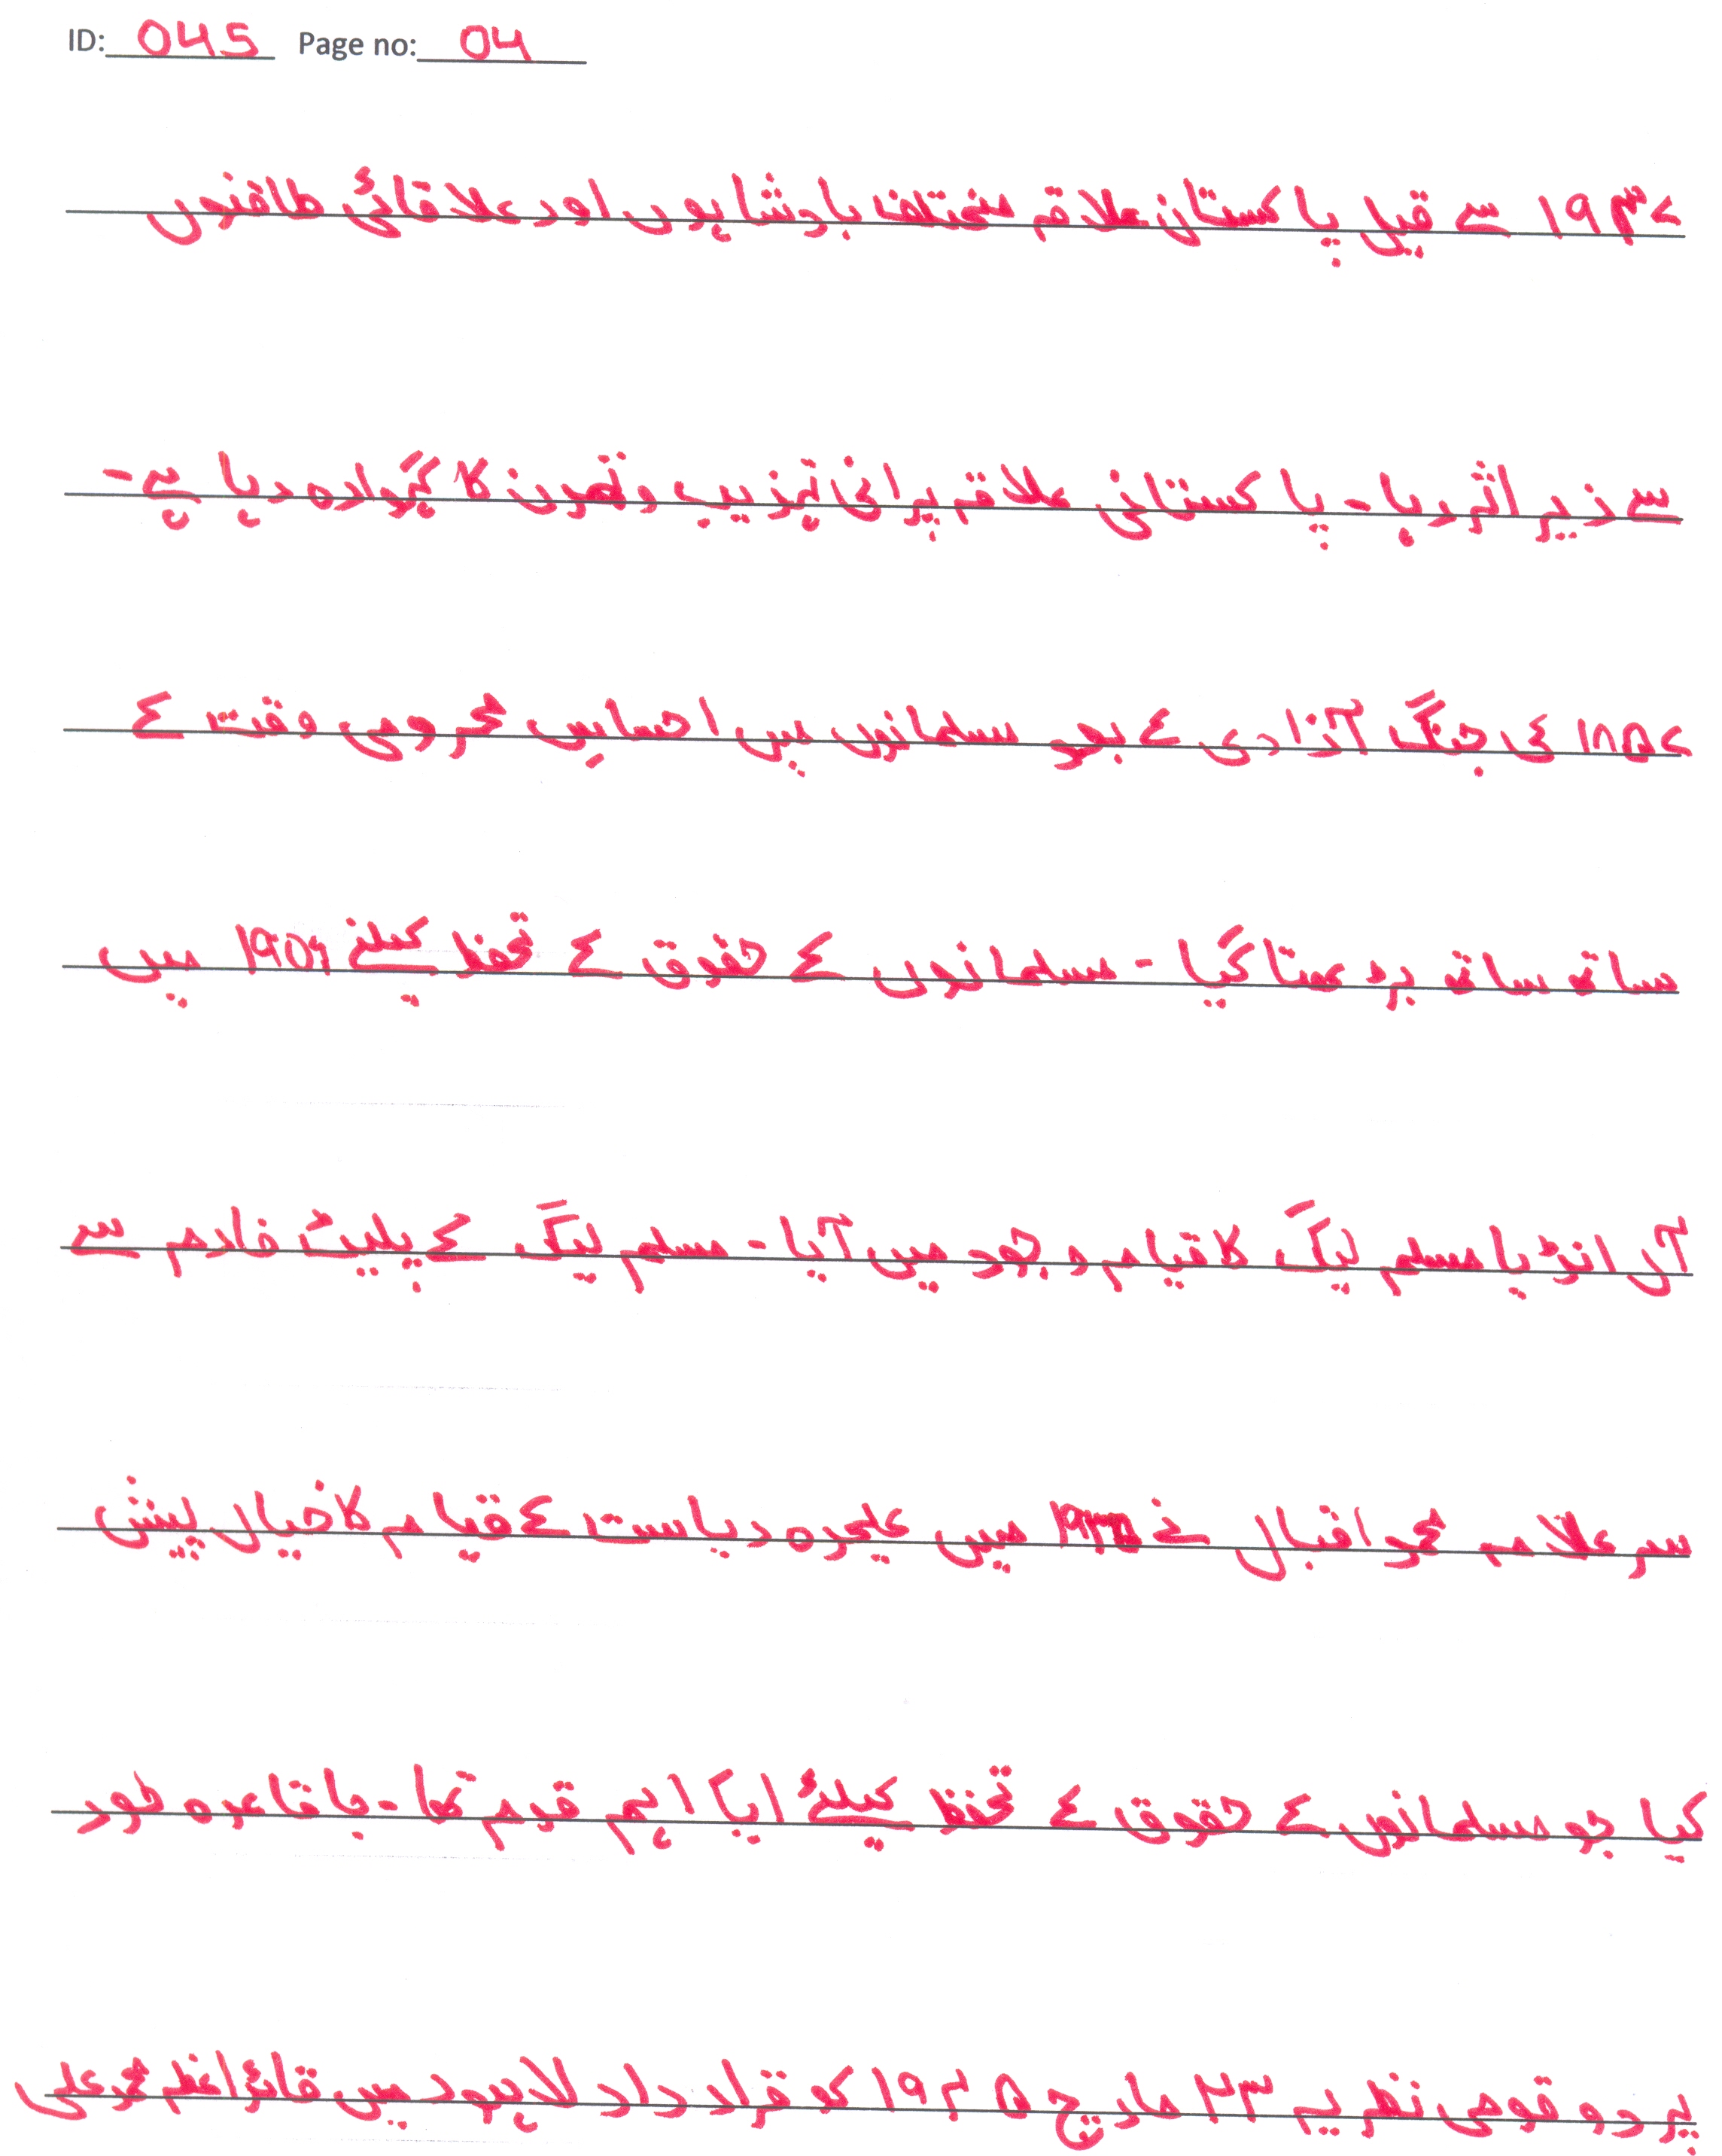 ID: 045 Page no: 04
۱۹۴۷ سے قبل پاکستان علاقہ مختلف بادشاہوں اور علاقائی طاقتوں
سے زیر اثر رہا - پاکستانی علاقہ پرانی تہذیب و تمدن کا گہوارہ رہا ہے -
۱۸۵۷ کی جنگ آزادی کے بعد مسلمانوں میں احساس محرومی وقت کے
ساتھ ساتھ بڑھتا گیا - مسلمانوں کے حقوق کے تحفظ کیلئے ۱۹۰۶ میں
آل انڈیا مسلم لیگ کا قیام وجود میں آیا - مسلم لیگ کے پلیٹ فارم سے
سر علامہ محمد اقبال نے میں علیحدہ ریاست کے قیام کا خیال پیش
کیا جو مسلمانوں کے حقوق کے تحفظ کیلئے ایک اہم قدم تھا - باقاعدہ طور
پر دو قومی نظریہ ۲۳ مارچ کو قرارداد لاہور میں قائداعظم محمد علی